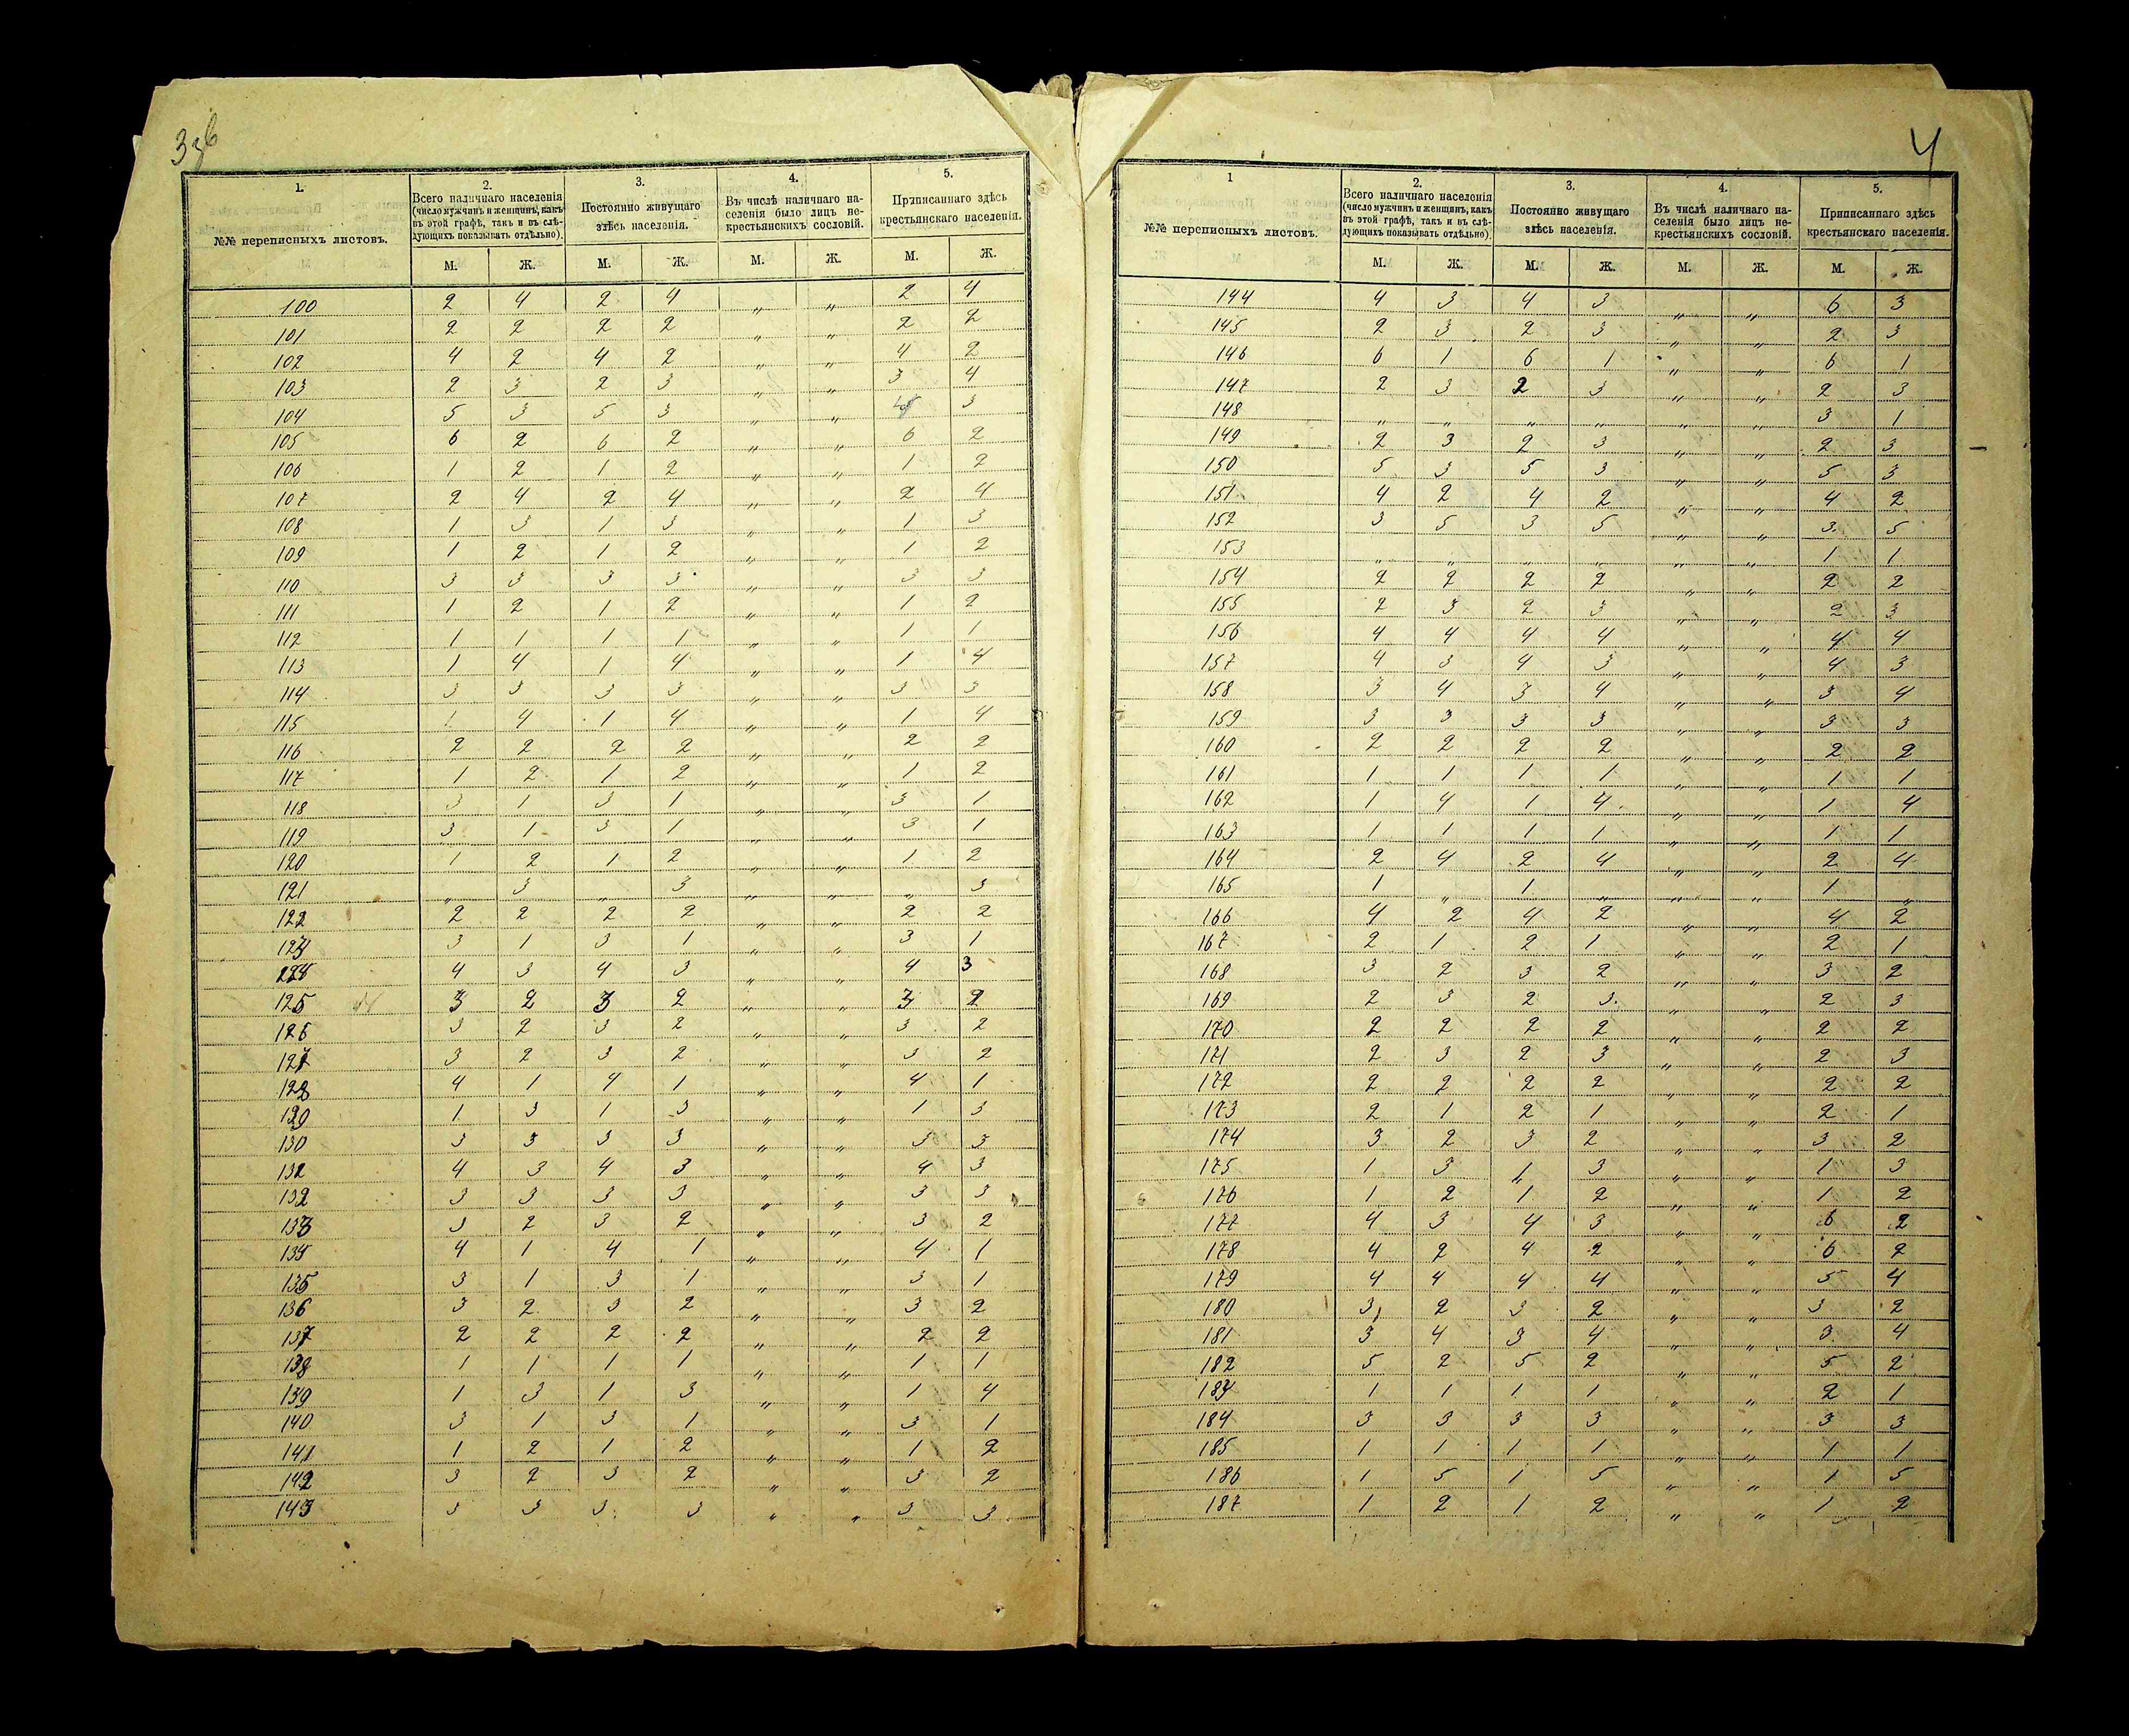 3 об
1. 2. 3. 4. 5.
№№ переписныхъ листовъ. Всего наличнаго населенія (число мужчинъ и женщинъ, какъ въ этой графѣ, такъ и въ слѣдующихъ показывать отдѣльно). Постоянно живущаго здѣсь населенія. Въ числѣ наличнаго населенія было лицъ некрестьянскихъ сословій. Приписаннаго здѣсь крестьянскаго населенія.
М. Ж. М. Ж. М. Ж. М. Ж.
100 2 4 2 4 " " 2 4
101 2 2 2 2 " " 2 2
102 4 2 4 2 " " 4 2
103 2 3 2 3 " " 3 4
104 5 3 5 3 " " 3
105 6 2 6 2 " " 6 2
106 1 2 1 2 " " 1 2
107 2 4 2 4 " " 2 4
108 1 3 1 3 " " 1 3
109 1 2 1 2 " " 1 2
110 3 3 3 3 " " 3 3
111 1 2 1 2 " " 1 2
112 1 1 1 1 " " 1 1
113 1 4 1 4 " " 1 4
114 3 3 3 3 " " 3 3
115 1 4 1 4 " " 1 4
116 2 2 2 2 " " 2 2
117 1 2 1 2 " " 1 2
118 3 1 3 1 " " 3 1
119 3 1 3 1 " " 3 1
120 1 2 1 2 " " 1 2
121 " 3 " 3 " " " 3
122 2 2 2 2 " " 2 2
123 3 1 3 1 " " 3 1
124 4 3 4 3 " " 4 3
125 3 2 3 2 " " 3 2
126 3 2 3 2 " " 3 2
127 3 2 3 2 " " 3 2
128 4 1 4 1 " " 4 1
129 1 3 1 3 " " 1 3
130 3 3 3 3 " " 3 3
131 4 3 4 3 " " 4 3
132 3 3 3 3 " " 3 3
133 3 2 3 2 " " 3 2
134 4 1 4 1 " " 4 1
135 3 1 3 1 " " 3 1
136 3 2 3 2 " " 3 2
137 2 2 2 2 " " 2 2
138 1 1 1 1 " " 1 1
139 1 3 1 3 " " 1 4
140 3 1 3 1 " " 3 1
141 1 2 1 2 " " 1 2
142 3 2 3 2 " " 3 2
143 3 3 3 3 " " 3 3
4
1 2. 3. 4. 5.
№№ переписныхъ листовъ. Всего наличнаго населенія (число мужчинъ и женщинъ, какъ въ этой графѣ, такъ и въ слѣдующихъ показывать отдѣльно). Постоянно живущаго здѣсь населенія. Въ числѣ наличнаго населенія было лицъ некрестьянскихъ сословій. Приписаннаго здѣсь крестьянскаго населенія.
М. Ж. М. Ж. М. Ж. М. Ж.
144 4 3 4 3 " " 6 3
145 2 3 2 3 " " 2 3
146 6 1 6 1 " " 6 1
147 2 3 2 3 " " 2 3
148 " " " " " " 3 1
149 2 3 2 3 " " 2 3
150 5 3 5 3 " " 5 3
151 4 2 4 2 " " 4 2
152 3 5 3 5 " " 3 5
153 " " " " " " 1 1
154 2 2 2 2 " " 2 2
155 2 3 2 3 " " 2 3
156 4 4 4 4 " " 4 4
157 4 3 4 3 " " 4 3
158 3 4 3 4 " " 3 4
159 3 3 3 3 " " 3 3
160 2 2 2 2 " " 2 2
161 1 1 1 1 " " 1 1
162 1 4 1 4 " " 1 4
163 1 1 1 1 " " 1 1
164 2 4 2 4 " " 2 4
165 1 " 1 " " " 1 "
166 4 2 4 2 " " 4 2
167 2 1 2 1 " " 2 1
168 3 2 3 2 " " 3 2
169 2 3 2 3 " " 2 3
170 2 2 2 2 " " 2 2
171 2 3 2 3 " " 2 3
172 2 2 2 2 " " 2 2
173 2 1 2 1 " " 2 1
174 3 2 3 2 " " 3 2
175 1 3 1 3 " " 1 3
176 1 2 1 2 " " 1 2
177 4 3 4 3 " " 6 2
178 4 2 4 2 " " 6 2
179 4 4 4 4 " " 5 4
180 3 2 3 2 " " 3 2
181 3 4 3 4 " " 3 4
182 5 2 5 2 " " 5 2
183 1 1 1 1 " " 2 1
184 3 3 3 3 " " 3 3
185 1 1 1 1 " " 1 1
186 1 5 1 5 " " 1 5
187 1 2 1 2 " " 1 2